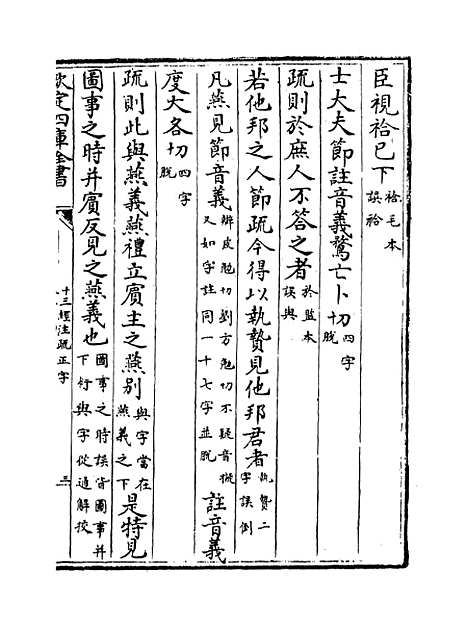 臣視袷已下袷毛本誤袷
士大夫節註音義鶩亡卜切四字脫
疏則於庶人不答之者於監本誤與
若他邦之人節疏今得以執贄見他邦君者執贄二字誤倒
凡燕見節音義辨皮勉切劉方勉切不疑音擬又如字註同一十七字並脫註音義
度大各切四字脫
疏則此與燕義燕禮立賓主之燕別與字當在燕義之下是特見
圖事之時并賓反見之燕義也圖事之時誤皆圖事并下衍與字從通解挍
欽定四庫全書
十三經注疏正字
三